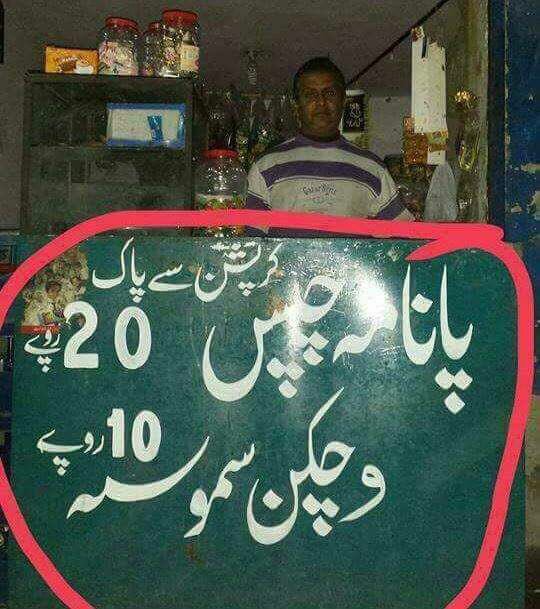 کرپشن سے پاک
پانامہ چپس 20 روپے
و چکن سموسہ 10 روپے